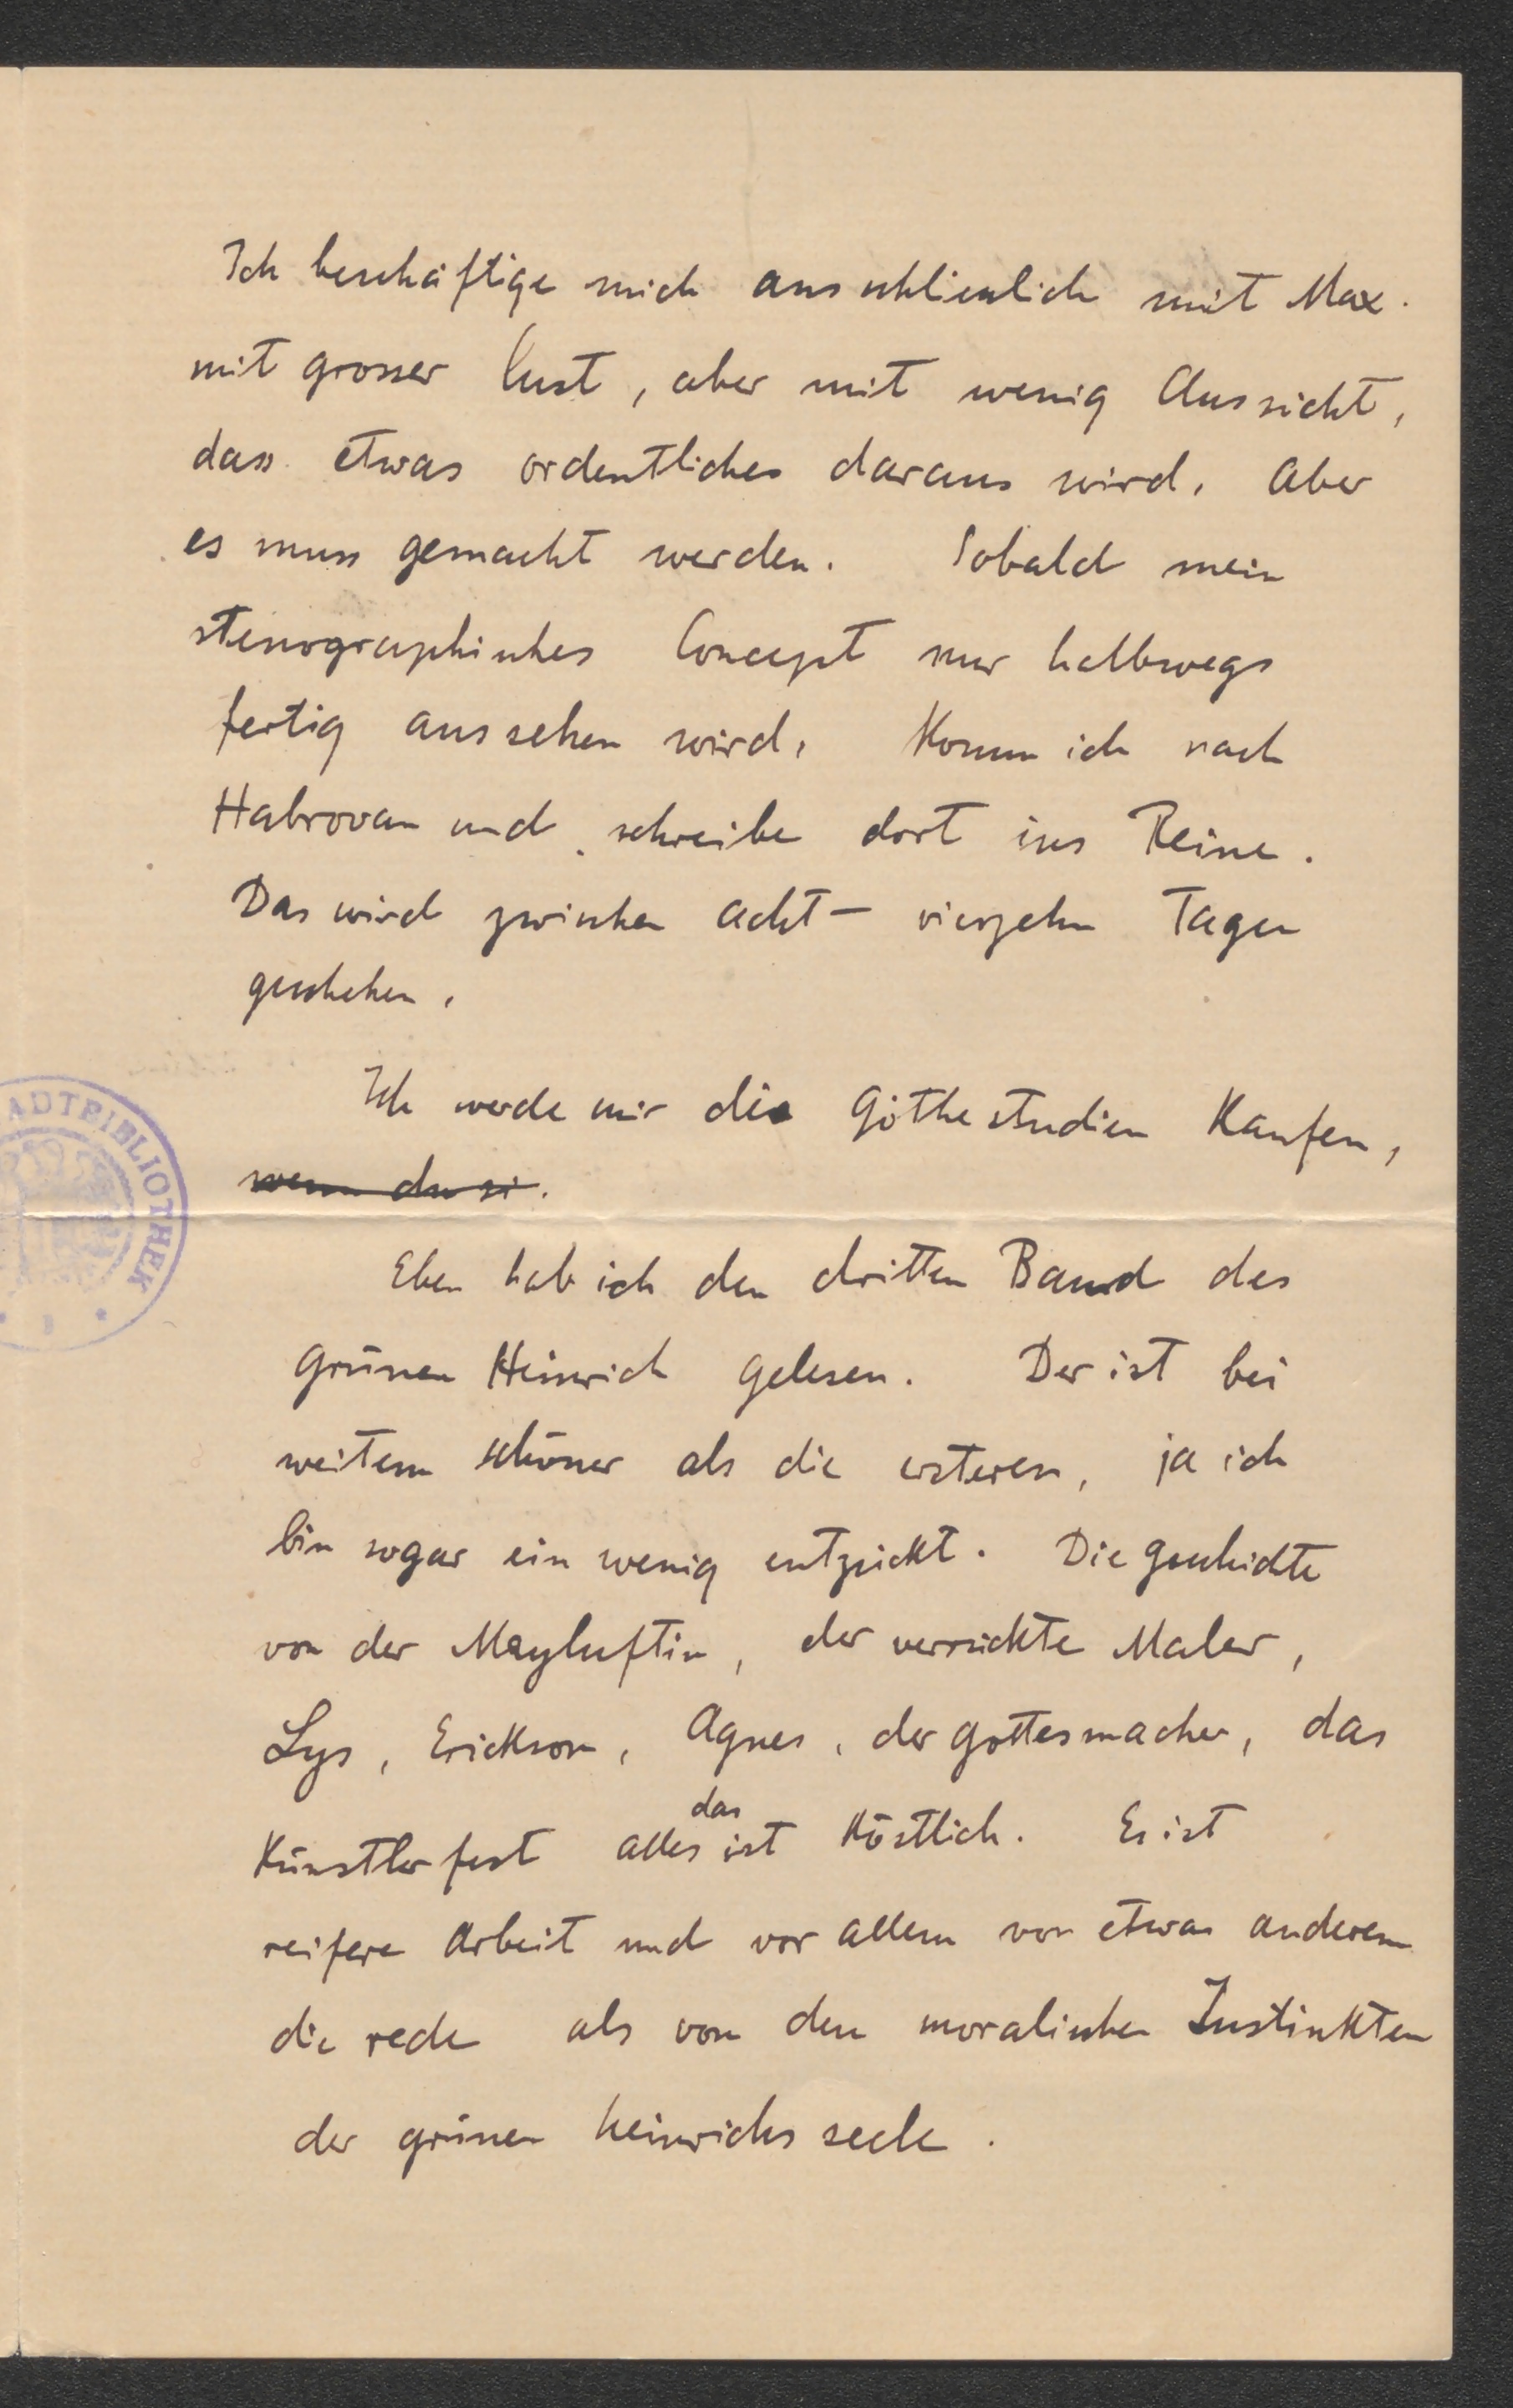 Ich beschäftige mich ausschliesslich mit Max.
mit grosser Lust, aber mit wenig Aussicht,
dass etwas ordentliches daraus wird. Aber
es muss gemacht werden. Sobald mein
stenographisches Concept nur halbwegs
fertig aussehen wird, komm ich nach
Habrovan und schreibe dort ins Reine.
Das wird zwischen acht – vierzehn Tagen
geschehen.
Ich werde mir die Göthestudien kaufen,
wenn du si.
Eben hab ich den dritten Band des
grünen Heinrich gelesen. Der ist bei
weitem schöner als die ersteren, ja ich
bin sogar ein wenig entzückt. Die geschichte
von der Mayluftin, der verrückte Maler,
Lys, Erickson, Agnes, der gottesmacher, das
das
Künstlerfest alles ist köstlich. Es ist
reifere Arbeit und vor allem von etwas anderem
die rede als von den moralischen Instinkten
der grünen heinrichsseele.
ADTBIBLIOTHEK